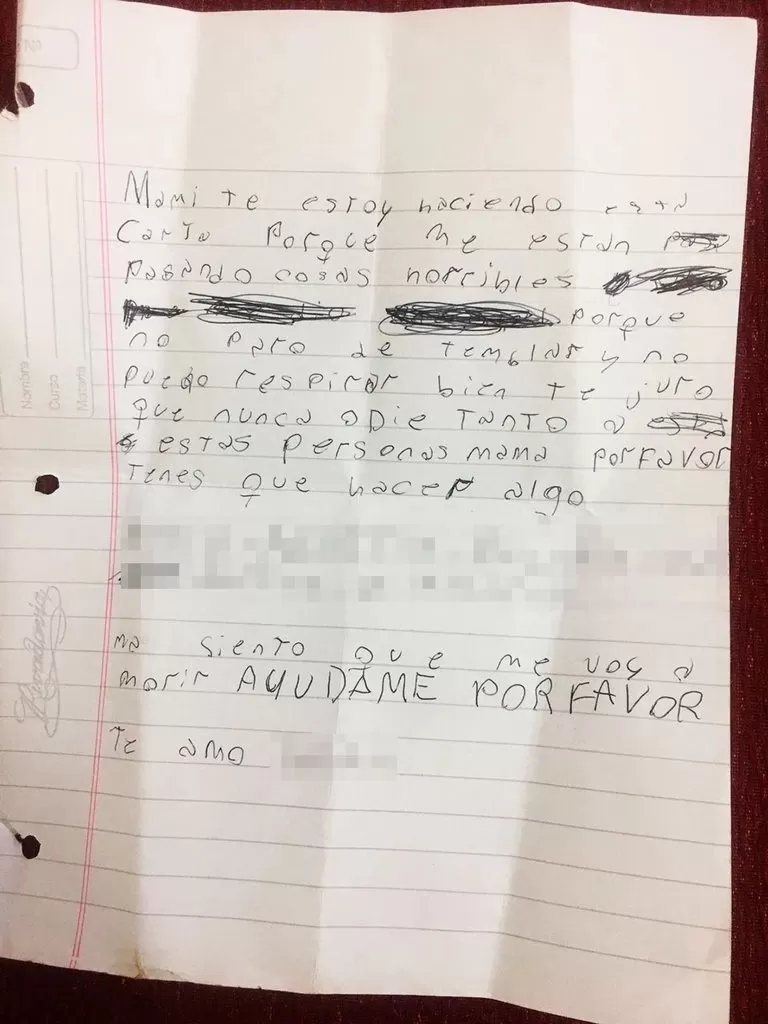 2
Nombre
Curso
Materia
Rivadavia
Mami te estoy haciendo esta
Carta porque me estan
pasando cosas horribles
porque
no paro de temblar y no
puedo respirar bien te juro
que nunca odie TANTO a
estas personas mama porFAVOR
Tenes que hacer algo
siento que me voy a
morir AYUDAME POR FAVOR
Te amo